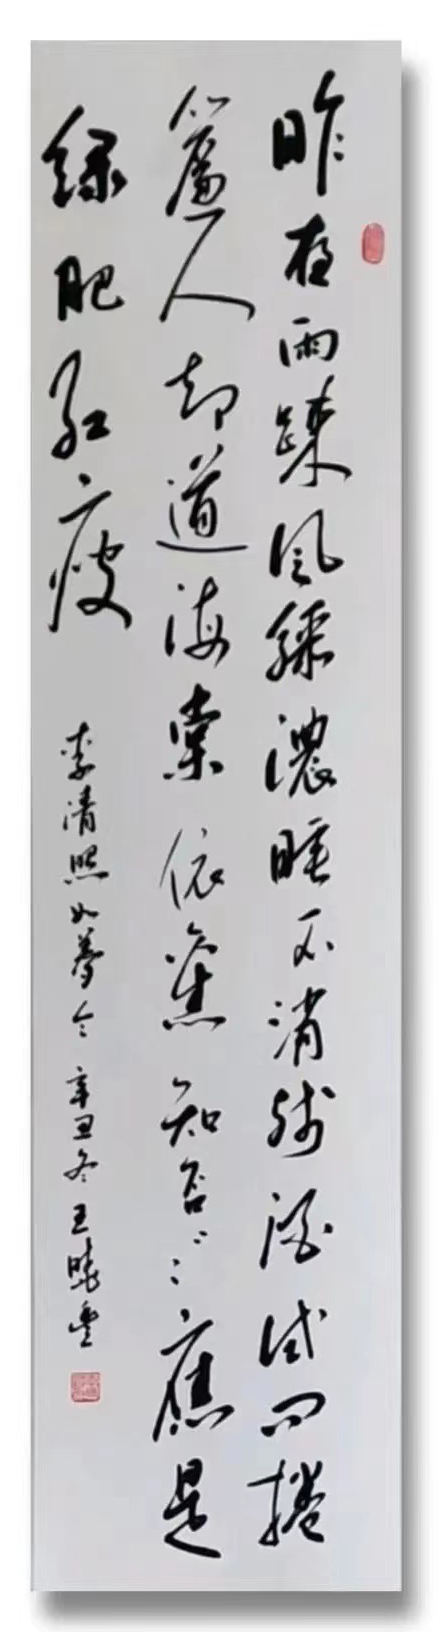 昨夜雨踈風驟濃睡不消殘酒試問捲
簾人却道海棠依舊知否〻〻應是
綠肥紅瘦
李清照如夢令 辛丑冬 王曉